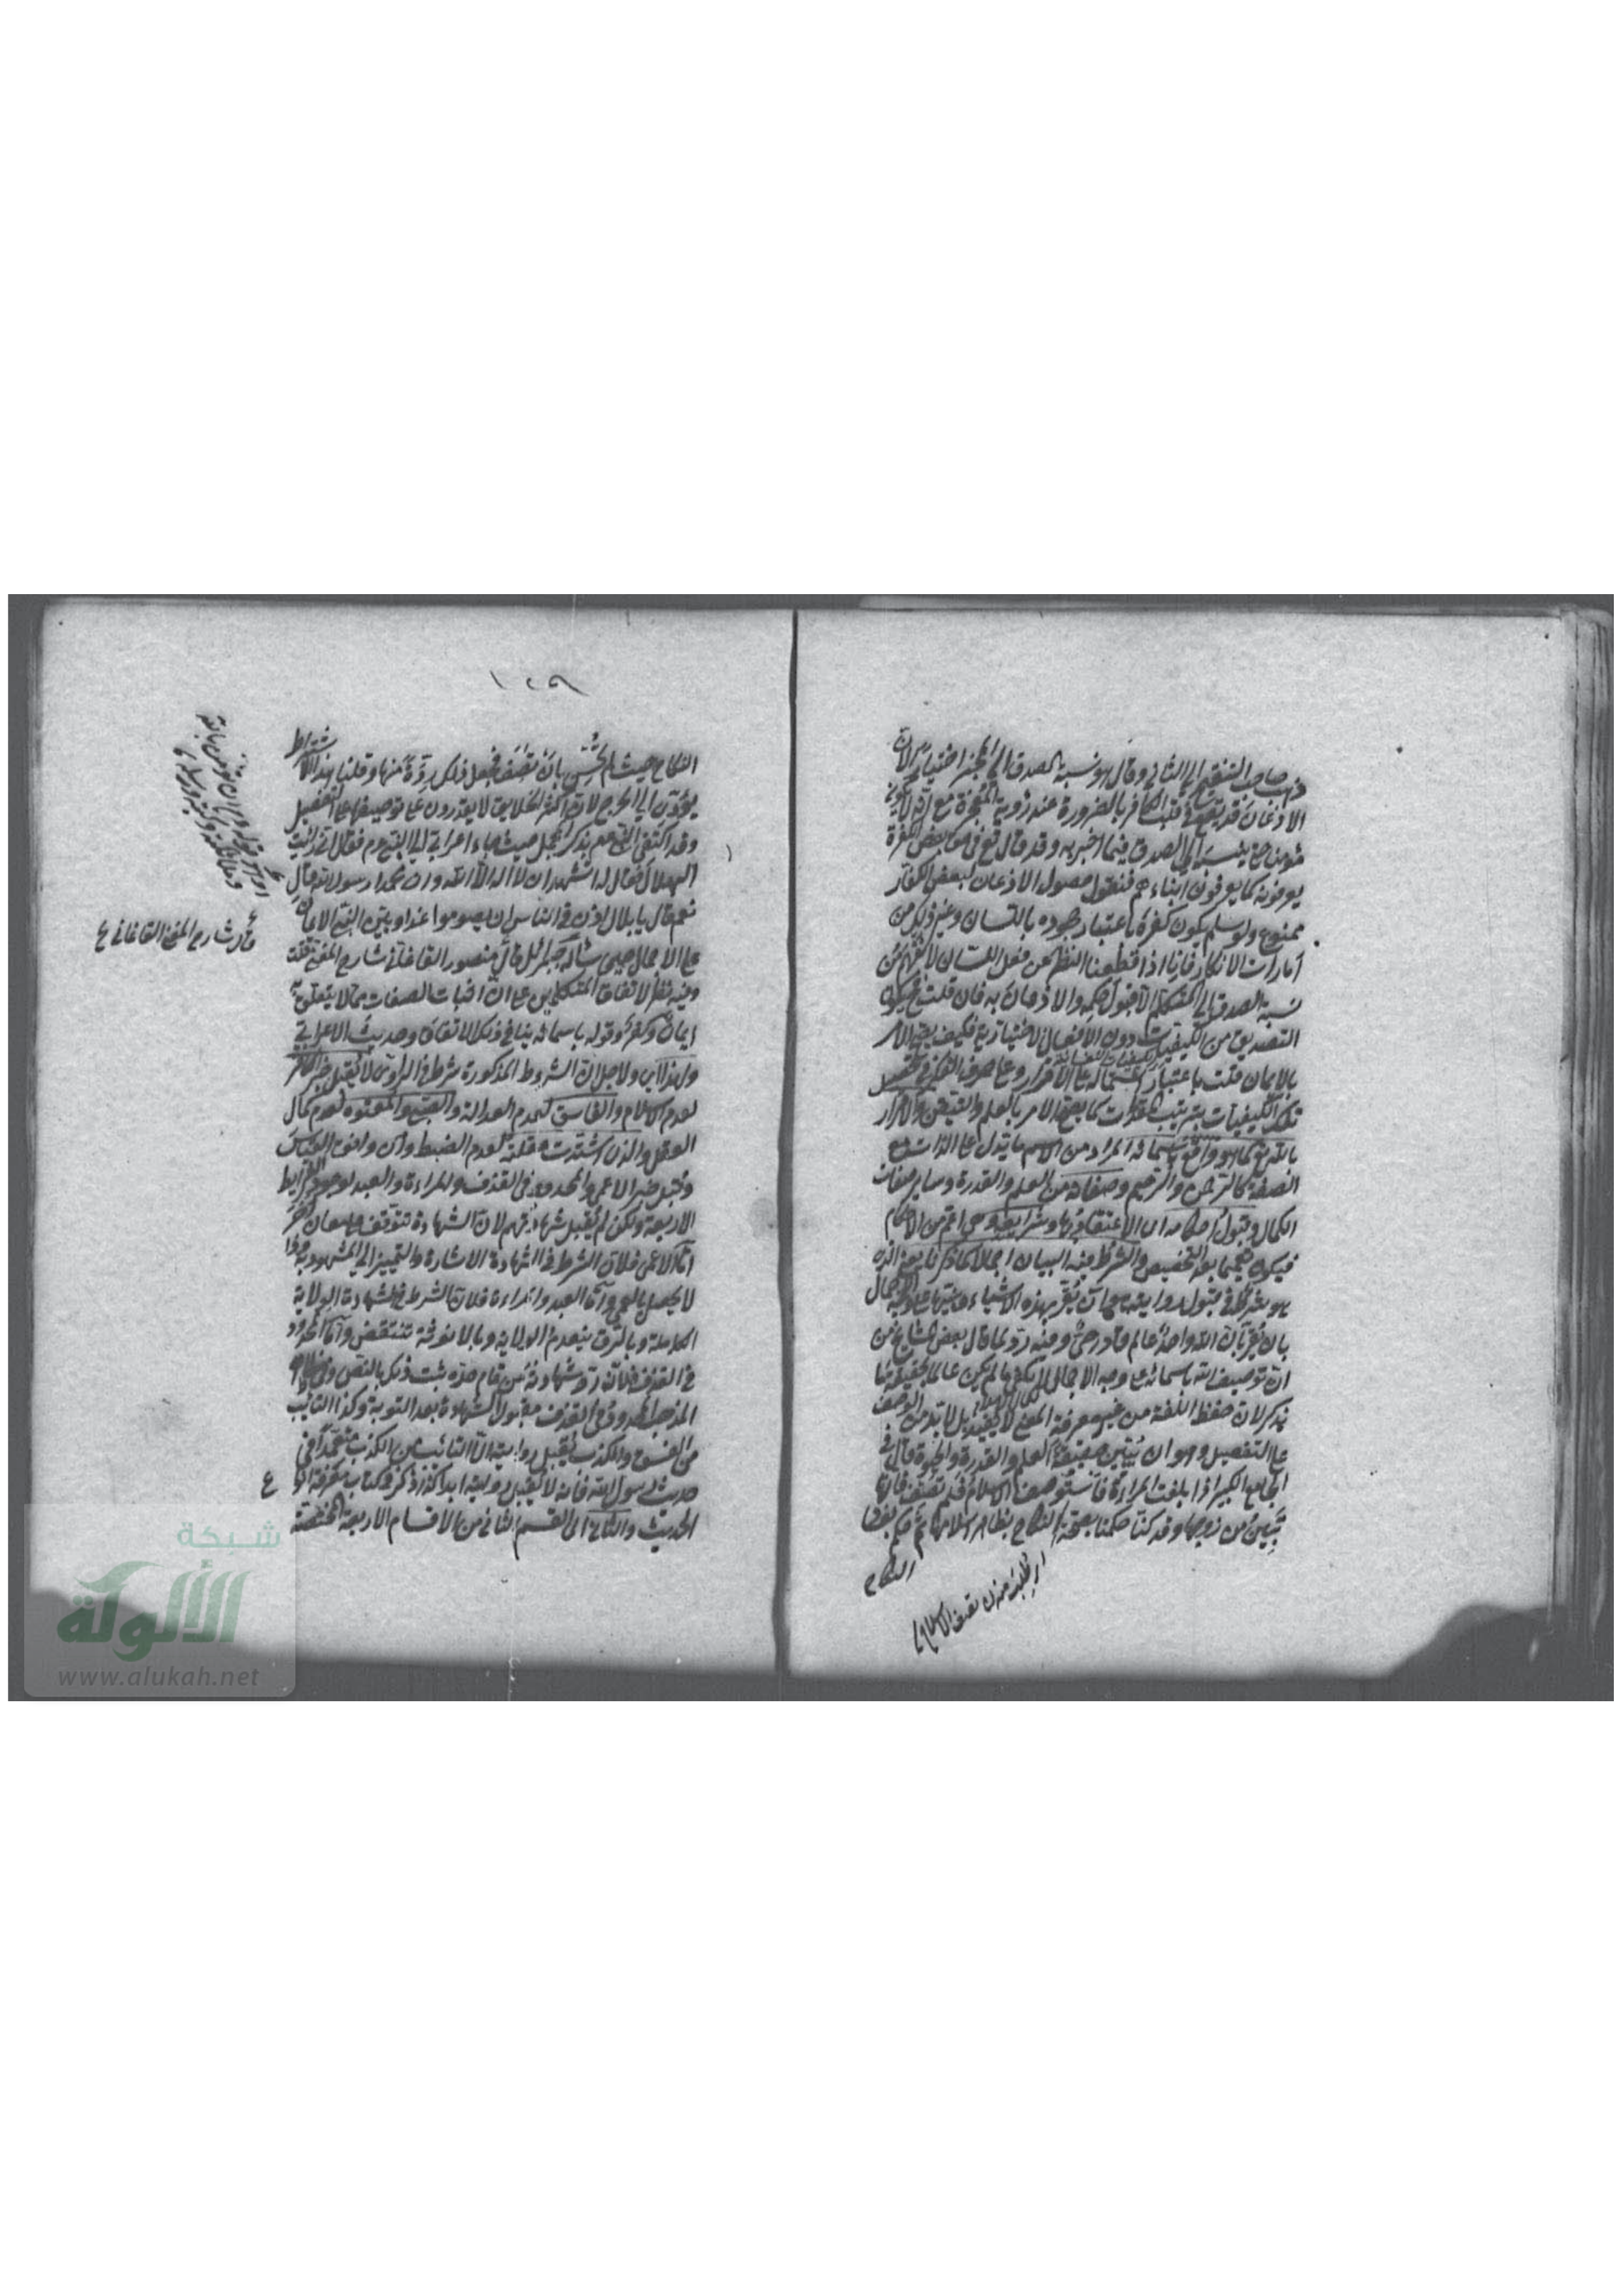 ذهب صاحب التنقيح الى الثاني وقال هو نسبة الصدق الى المخبر اختيارا لان
الاذعان قد يقع في قلب الكافر بالضرورة عند رؤية المعجزة مع انه لا يكون
مؤمنا حتى ينسبه الى الصدق فيما اخبر به وقد قال تع في حق بعض الكفرة
يعرفونه كما يعرفون ابناءهم فنقول حصول الاذعان لبعض الكفار
ممنوع ولو سلم يكون كفره باعتبار جحوده باللسان وغير ذلك من
امارات الانكار فانا اذا قطعنا النظر عن فعل اللسان لا نفهم من
نسبة الصدق الى المتكلم الا قبول حكمه والاذعان به فان قلت
التصديق من الكيفيات دون الافعال الاختيارية فكيف يصح الامر
بالايمان قلت باعتبار اشتماله على الاقرار وعلى صرف القوة في تحصيل
تلك الكيفيات بترتيب المقدمات كما يصح الامر بالعلم والتيقن والاقرار
بالله تع كما هو واقع باسمائه المراد من الاسم ما يدل على الذات مع
الصفة كالرحمن والرحيم وصفاته من العلم والقدرة وساير صفات
الكمال وقبول احكامه اى الاعتقاد بها وشرايعه وهي اعم من الاحكام
فيكون تعميما بعد التخصيص والشرط فيه البيان اجمالا كما ذكرنا يعني الذى
هو شرط في قبول روايته هو ان يقر بهذه الاشياء على وجه الاجمال
بان يقر بان الله واحد عالم قادر حي وفيه رد لما قال بعض المشايخ من
ان توصيف الله باسمائه على وجه الاجمال لا يكفي ما لم يكن عالما بحقيقة ما
يذكر لان حفظ اللغة من غير معرفة المعنى لا يفيد بل لا بد من الوصف
على التفصيل وهو ان يبين حقيقة العلم والقدرة والحيوة قال في
الجامع الكبير اذا بلغت المراءة فاستوصفت الاسلام فلم تصف فانها
تبين من زوجها وقد كنا حكمنا بصحة النكاح بظاهر اسلامها ثم حكم بفساد
النكاح
اى طلبت منها ان تصف الاسلام
١٢٩
النكاح حيث لم تحسن بان تصف فجعل ذلك ردة منها وقلنا هذا الاشتراط
يؤدى الى الحرج لان اكثر الخلايق لا يقدرون على توصيفها على التفصيل
وقد اكتفى النبي عم بذكر الجمل حيث جاء اعرابي الى النبي عم فقال انى رايت
الهلال فقال له اتشهد ان لا اله الا الله وان محمدا رسول الله قال
نعم قال يا بلال اذن في الناس ان يصوموا غدا وبين النبي الايمان
على الاجمال حين سأله جبرائل قال منصور القاءاني شارح المغني قلت
وفيه نظر لاتفاق المتكلمين على ان اثبات الصفات مما لا يتعلق به
ايمان وكفر وقوله باسمائه ينافي ذلك الاتفاق وحديث الاعرابي
ولهذا اى ولاجل ان الشروط المذكورة شرط في الراوى لا يقبل خبر الكافر
لعدم الاسلام والفاسق لعدم العدالة والصبي والمعتوه لعدم كمال
العقل والذى اشتدت غفلته لعدم الضبط وان وافق القياس
وقبل خبر الاعمى والمحدود في القذف والمراءة والعبد لوجود الشرايط
الاربعة ولكن لم يقبل شهادتهم لان الشهادة تتوقف على معان اخر
اما الاعمى فلان الشرط في الشهادة الاشارة والتمييز الى المشهود به وذا
لا يحصل بالعمى واما العبد والمراءة فلان الشرط في الشهادة الولاية
الكاملة وبالرق ينعدم الولاية وبالانوثة تنتقض واما المحدود
في القذف فلان رد شهادته من تمام حده ثبت ذلك بالنص وفي ظاهر
المذهب المحدود في القذف مقبول الشهادة بعد التوبة وكذا التائب
من الفسق والكذب يقبل روايته الا التائب من الكذب متعمدا في
حديث رسول الله فانه لا يقبل روايته ابدا كذا ذكر في كتاب معرفة انواع
الحديث والثاني اى القسم الثاني من الاقسام الاربعة المختصة
قال شارح المغني القاءاني
شبكة
الألوكة
www.alukah.net